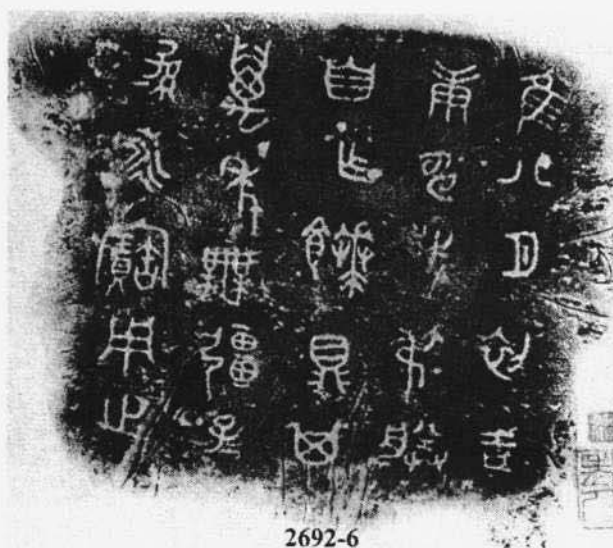 隹八月初吉
庚申𢦏弔朕
自乍饙鼎其
萬年無疆子
孫永寶用之
2692-6